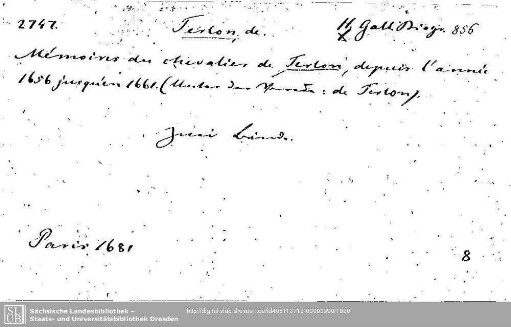 2747. Terlon, de. H. Gall. Biogr. 856
Mémoires du chevalier de Terlon, depuis l'année
1656 jusqu'en 1661. (Unter der Vorrede: de Terlon).
Zwei Bände.
Paris 1681
8
Sächsische Landesbibliothek –
Staats- und Universitätsbibliothek Dresden